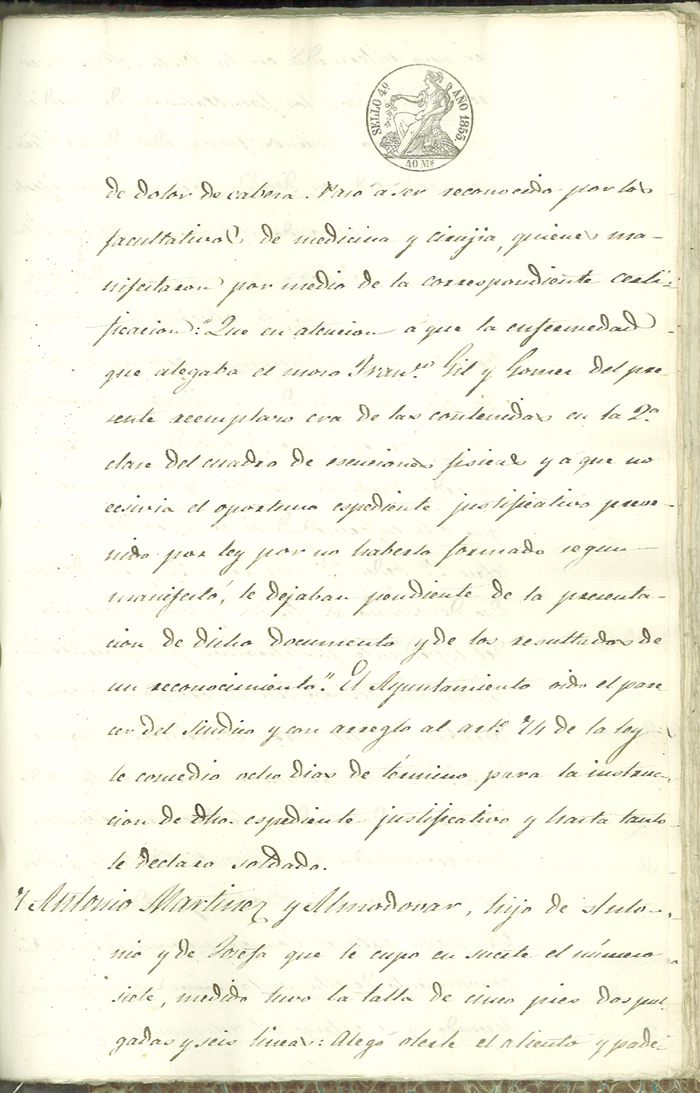 SELLO 4º AÑO 1855.
40 Ms
de dolor de cabeza. Pasó á ser reconocido por los
facultativos de medicina y cirujia, quienes ma-
nifestaron por medio de la correspondiente certi-
ficacion: "Que en atencion á que la enfermedad
que alegaba el moso Fran.co Gil y Gomez del pre-
sente reemplazo era de las contenidas en la 2.a
clase del cuadro de esenciones fisicas y á que no
ecsivia el oportuno espediente justificativo preve-
nido por ley por no haberlo formado segun
manifestó, le dejaban pendiente de la presenta-
cion de dicho documento y de los resultados de
un reconocimiento". El Ayuntamiento oido el pare
cer del Sindico y con arreglo al art.o 74 de la ley
le concedio ocho dias de término para la instruc-
cion de dho. espediente justificativo y hasta tanto
le declaro soldado.
7 Antonio Martinez y Almodovar, hijo de Anto-
nio y de Josefa que le cupo en suerte el número
siete, medido tuvo la talla de cinco pies dos pul-
gadas y seis lineas: Alegó olerle el aliento y pade-